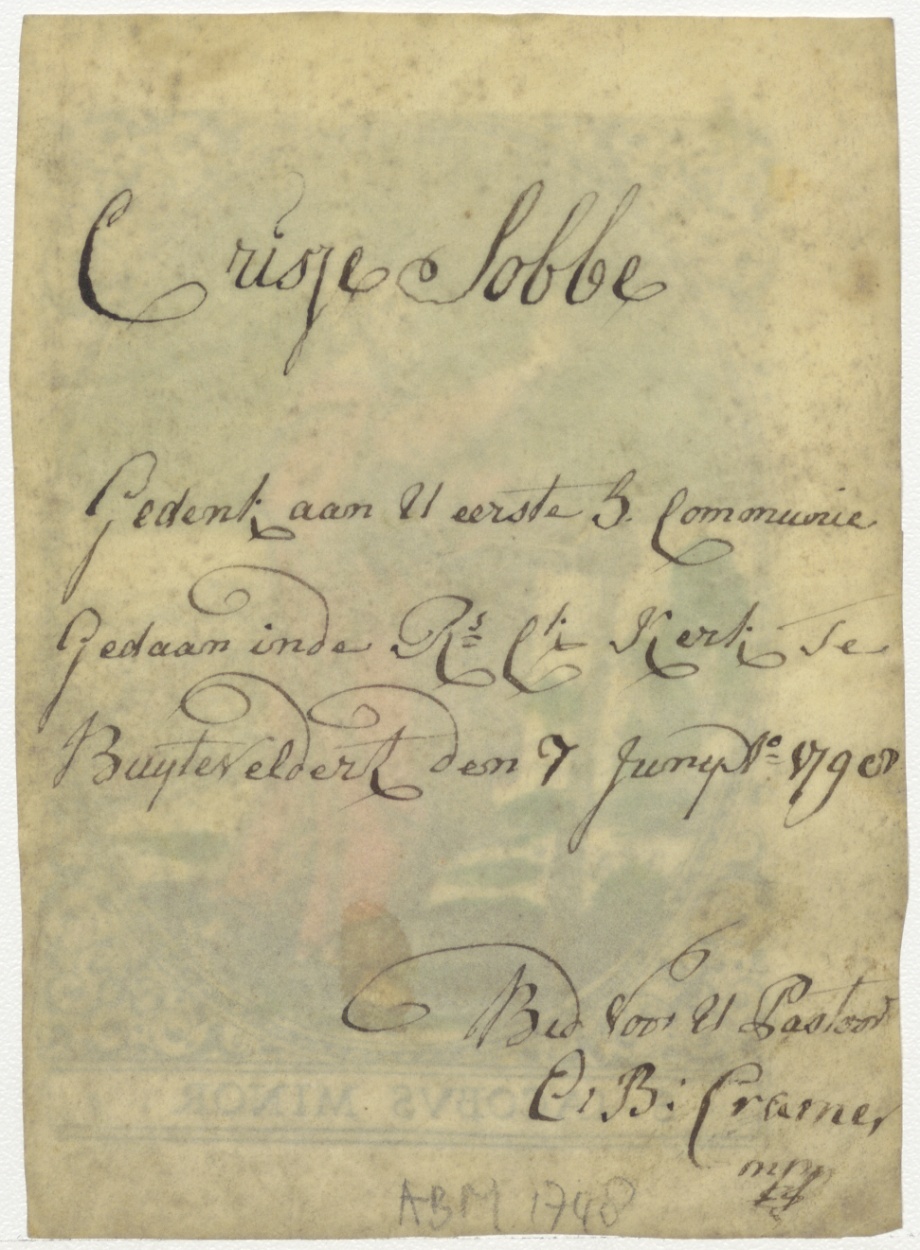 Crisje Sobbe
Gedenk aan U eerste H. Communie
Gedaan inde Rs Ct Kerk te
Buyteveldert den 7 Juny Ao 1798
Bid voor U Pastoor
C: B: Cramer
mpp
JACOBVS MINOR
ABM 1748